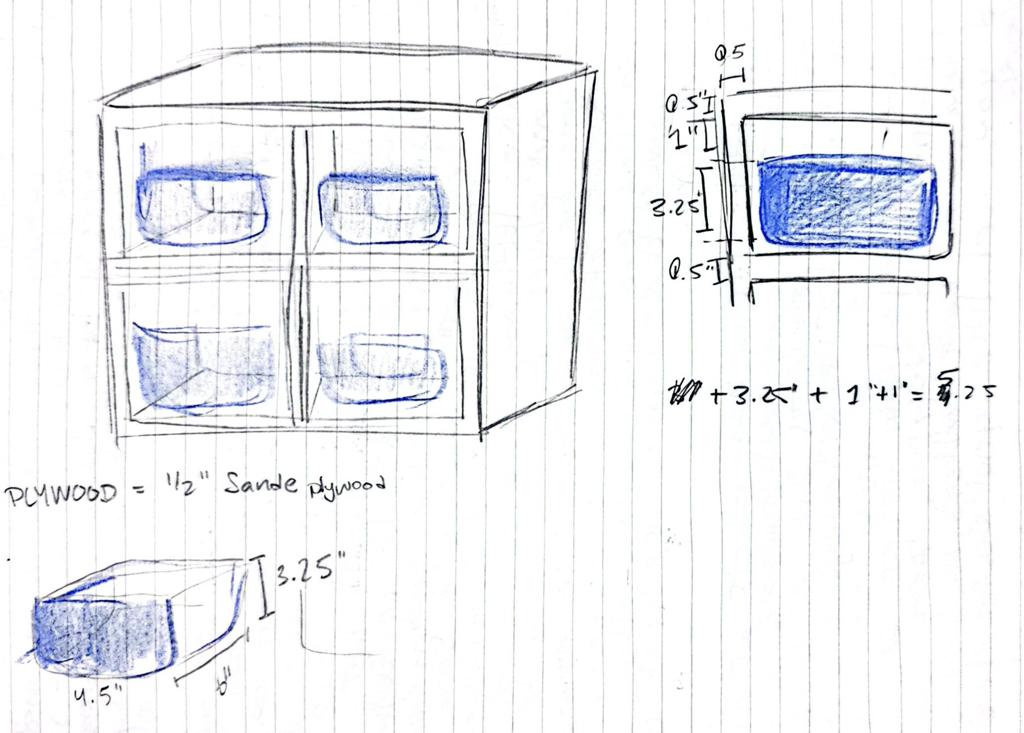 0.5
0.5"
1"
3.25"
0.5"
+ 3.25" + 1"+1" = 5.25
PLYWOOD = 1/2" Sande plywood
3.25"
4.5"
6"